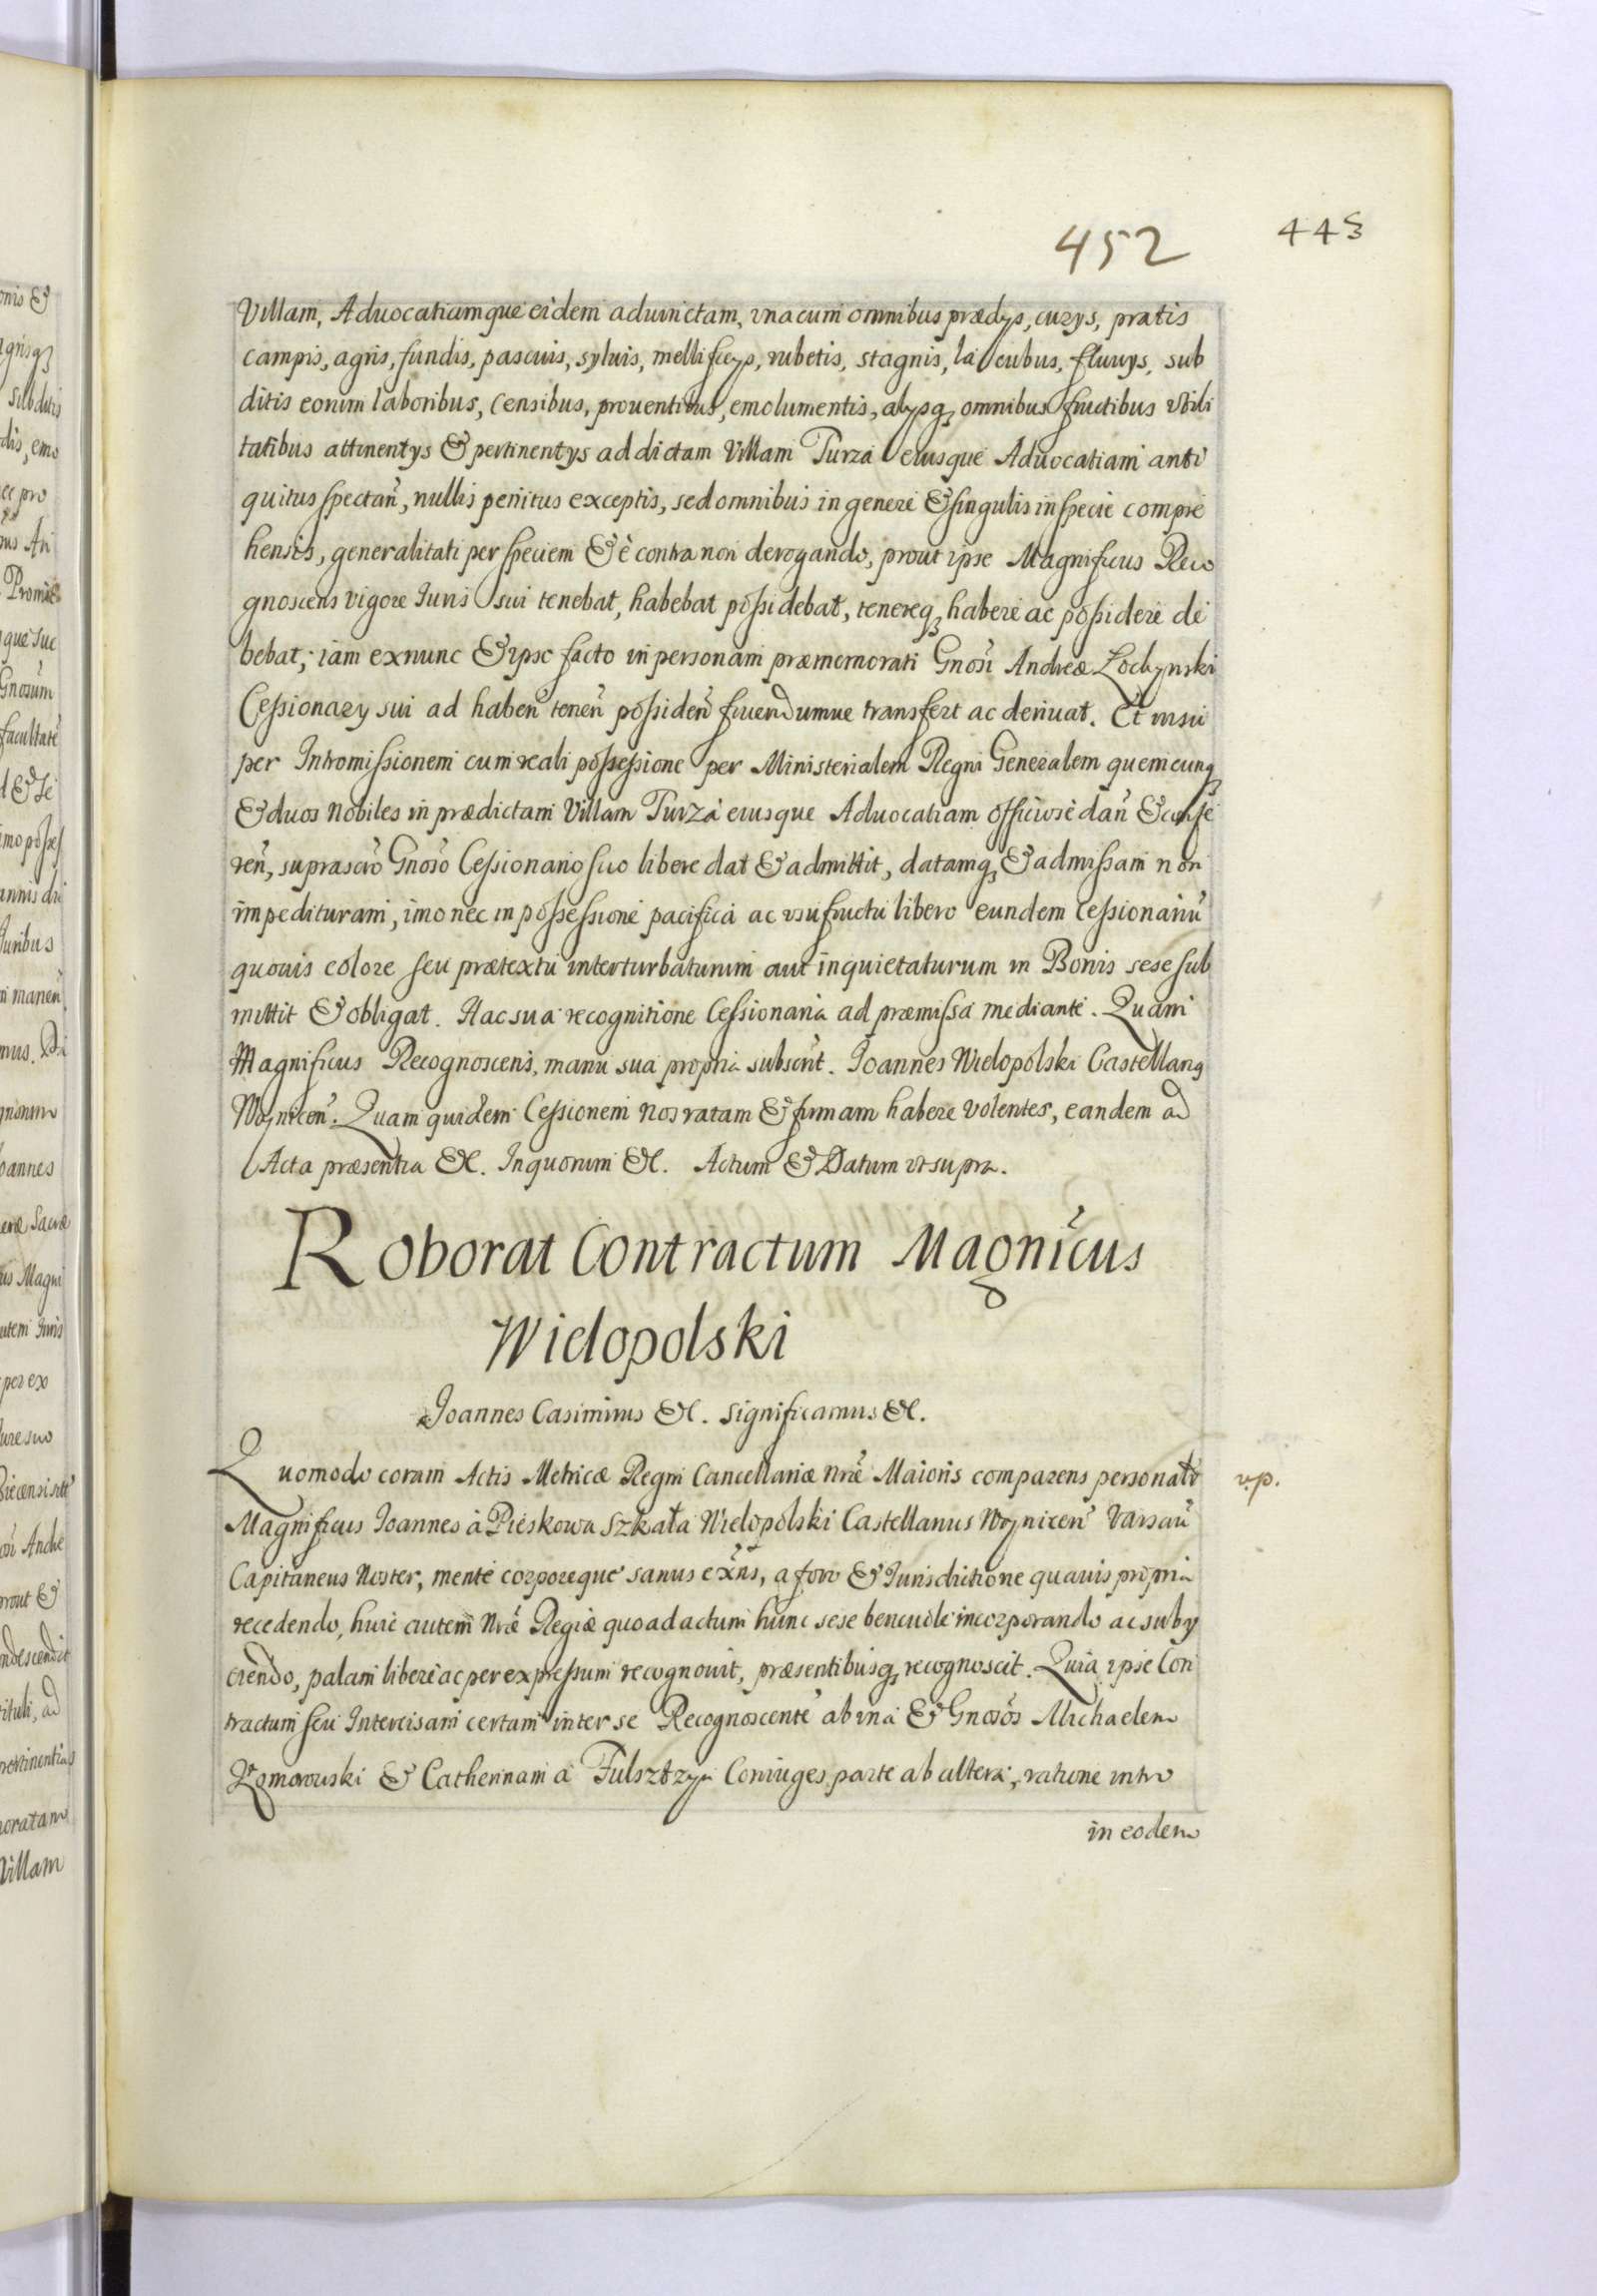 452
443
Villam, Aduocatiamque eidem aduinctam, vna cum omnibus prædys, curys, pratis
campis, agris, fundis, pascuis, syluis, mellificys, rubetis, stagnis, lacubus, fluuys, sub
ditis eorum laboribus, censibus, prouentibus, emolumentis, alysq₃ omnibus fructibus vtili
tatibus attinentys & pertinentys ad dictam Villam Turza eiusque Aduocatiam anti
quitus spectan̄, nullis penitus exceptis, sed omnibus in genere & singulis in specie compre
hensis, generalitati per speciem & è contra non derogando, prout ipse Magnificus Reco
gnoscens vigore Iuris sui tenebat, habebat possidebat, tenereq₃ habere ac possidere de
bebat, iam exnunc & ipso facto in personam præmemorati Gnosi Andreæ Łochynski
Cessionary sui ad haben̄ tenen̄ possiden̄ fruendumue transfert ac deriuat. Et insu
per Intromissionem cum reali possessione per Ministerialem Regni Generalem quemcunq₃
& duos Nobiles in prædictam Villam Turza eiusque Aduocatiam officiose dan̄ & confe
ren̄, suprascr̄o Gnoso Cessionario suo libere dat & admittit, datamq₃ & admissam non
impedituram, imo nec in possessione pacifica ac vsufructu libero eundem Cessionariū
quouis colore seu prætextu interturbaturum aut inquietaturum in Bonis sese sub
mittit & obligat. Hac sua recognitione Cessionaria ad præmissa mediante. Quam
Magnificus Recognoscens, manu sua propria subscr̄t. Ioannes Wielopolski Castellanꝯ
Woynicen̄. Quam quidem Cessionem nos ratam & firmam habere volentes, eandem ad
Acta præsentia &c. In quorum &c. Actum & Datum vt supra.
Roborat Contractum Magn̄icus
Wielopolski
Ioannes Casimirus &c. Significamus &c.
Quomodo coram Actis Metricæ Regni Cancellariæ Nr̄æ Maioris comparens personalr̄
v.p.
Magnificus Ioannes à Pieskowa Szkała Wielopolski Castellanus Woynicen̄ Varsau̅
Capitaneus Noster, mente corporeque sanus ex̄ns, a foro & Iurisdictione quauis propria
recedendo, huic autem Nr̄æ Regiæ quo ad actum hunc sese beneuole incorporando ac suby
ciendo, palam libere ac per expressum recognouit, præsentibusq₃ recognoscit. Quia ipse Con
tractum seu Intercisam certam inter se Recognoscente ab vna & Gnosos Michaelem
Komorowski & Catherinam à Fulsztzyn Coniuges parte ab altera, ratione intro
in eodem